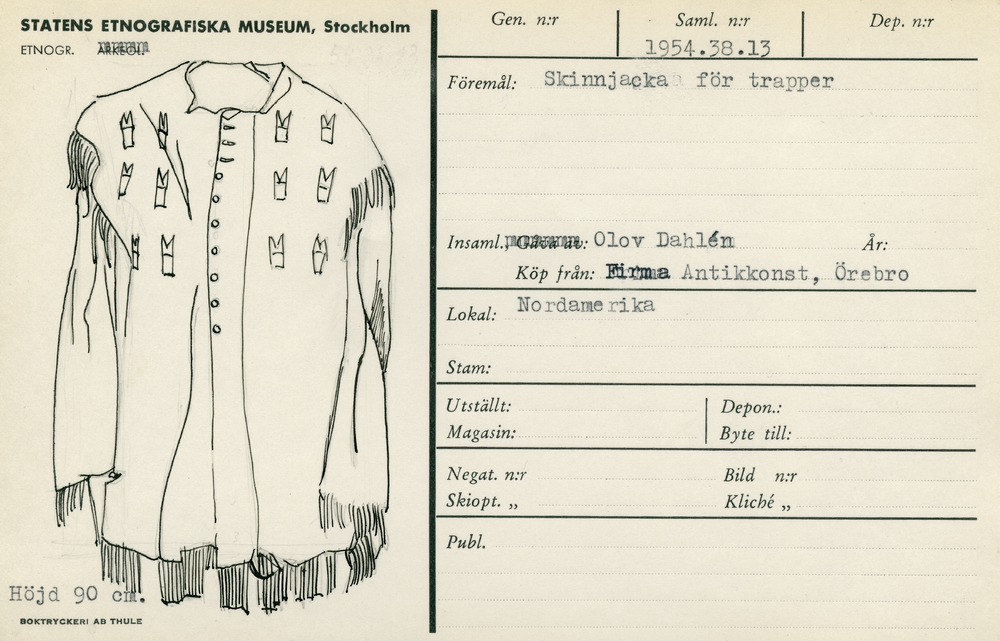 STATENS ETNOGRAFISKA MUSEUM, Stockholm
ETNOGR. ARKEOL.
Höjd 90 cm.
BOKTRYCKERI AB THULE
Gen. n:r Saml. n:r Dep. n:r
1954.38.13
Föremål: Skinnjacka för trapper
Insaml., Gåva av: Olov Dahlén År:
Köp från: Firma Antikkonst, Örebro
Lokal: Nordamerika
Stam:
Utställt: Depon.:
Magasin: Byte till:
Negat. n:r Bild n:r
Skiopt. „ Kliché „
Publ.